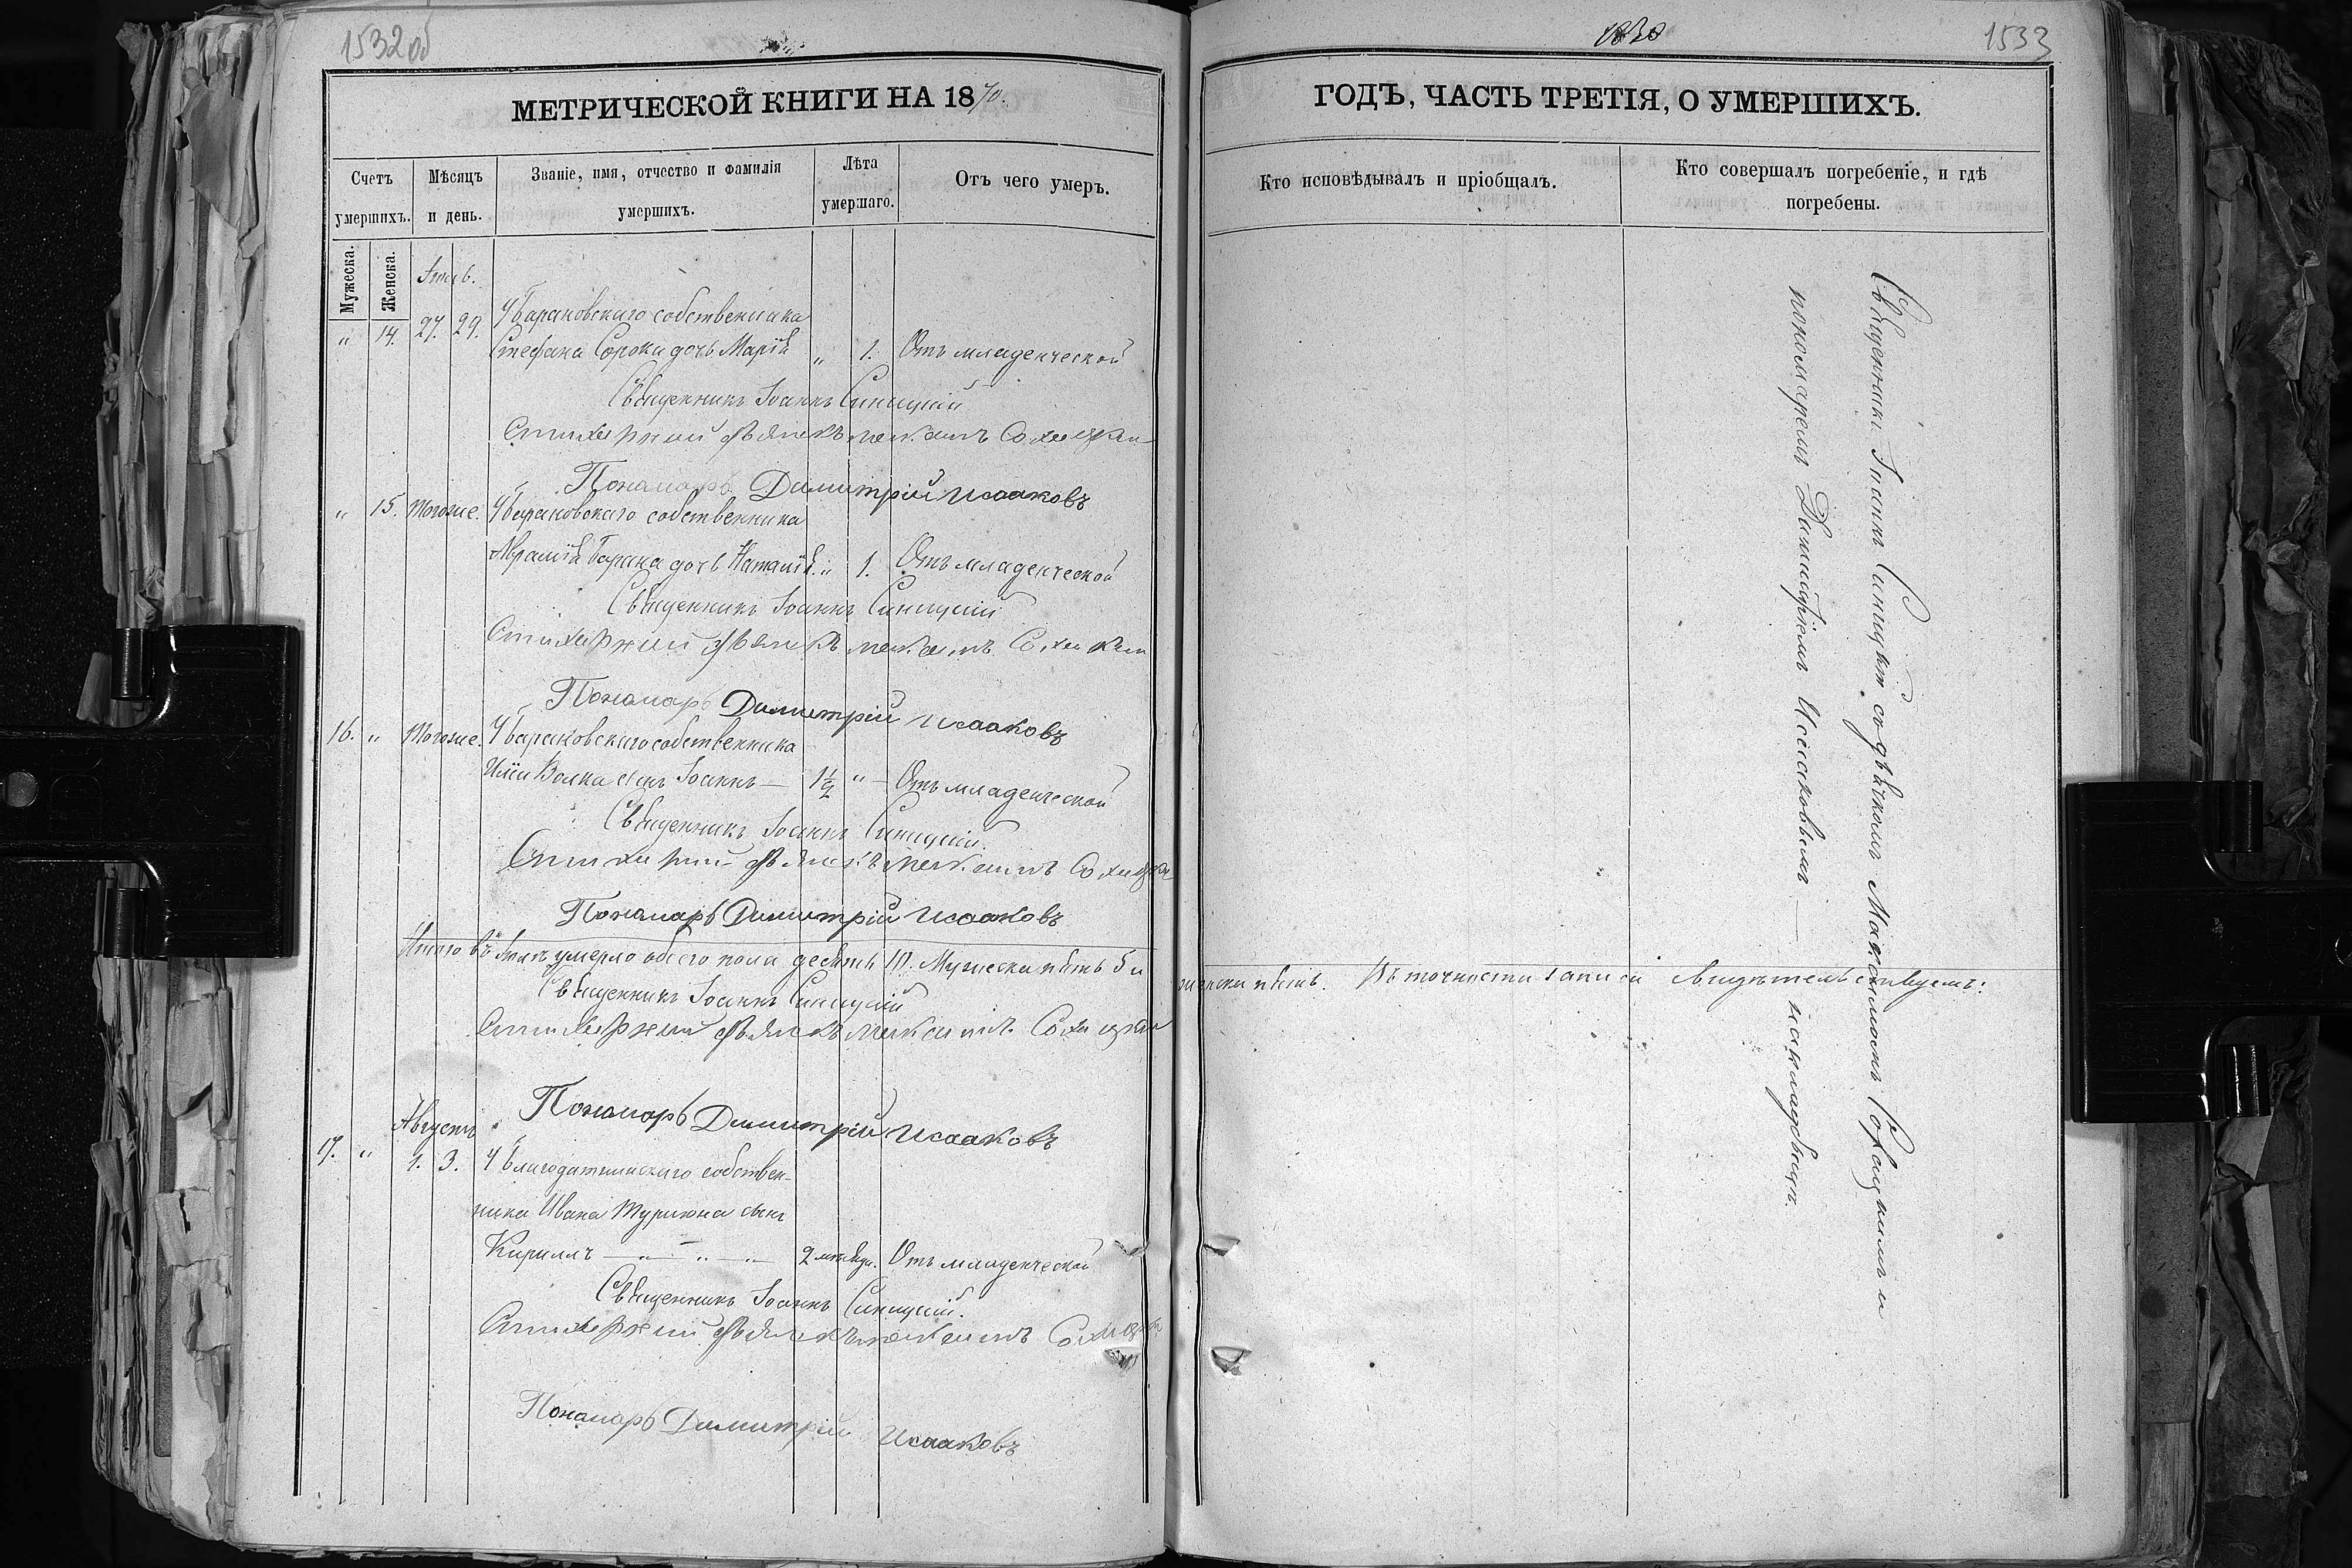 1532об
МЕТРИЧЕСКОЙ КНИГИ НА 1870.
Счетъ умершихъ.
Мѣсяцъ и день.
Званіе, имя, отчество и фамилія умершихъ.
Лѣта умершаго.
Отъ чего умеръ.
Мужеска.
Женска.
" 14. 27. 29. Ч барановскаго собственника
Стефана Сорока дочь Марія " 1. Отъ младенческой
Священникъ Іоаннъ Синицкій
Стихарный дьячекъ
Пономарь Димитрій Исааковъ
" 15. Тогоже. Ч барановскаго собственника
Барана дочь Наталія " 1. Отъ младенческой
Священникъ Іоаннъ Синицкій
Стихарный дьячекъ
Пономарь Димитрій Исааковъ
16. " Тогоже. Ч барановскаго собственника
Иліи Волка сынъ Іоаннъ — 1½ " — Отъ младенческой
Священникъ Іоаннъ Синицкій.
дьячекъ
Пономарь Димитрій Исааковъ
Итого въ умерло обоего пола десять 10. Мужеска пять 5 и
женска пять. Въ точности записи свидѣтельствуемъ:
Священникъ Іоаннъ Синицкій
Стихарный дьячекъ
Пономарь Димитрій Исааковъ
Августъ
17. " 1. 3. Ч благодатнинскаго собствен-
ника Ивана сынъ
Кириллъ — " — " — " — 2 Отъ младенческой
Священникъ Іоаннъ Синицкій.
Стихарный дьячекъ
Пономарь Димитрій Исааковъ
1870
1533
ГОДЪ, ЧАСТЬ ТРЕТІЯ, О УМЕРШИХЪ.
Кто исповѣдывалъ и пріобщалъ.
Кто совершалъ погребеніе, и гдѣ погребены.
Священникъ Іоаннъ Синицкій съ дьячкомъ и
пономаремъ Димитріемъ Исааковымъ — на кладбищѣ.